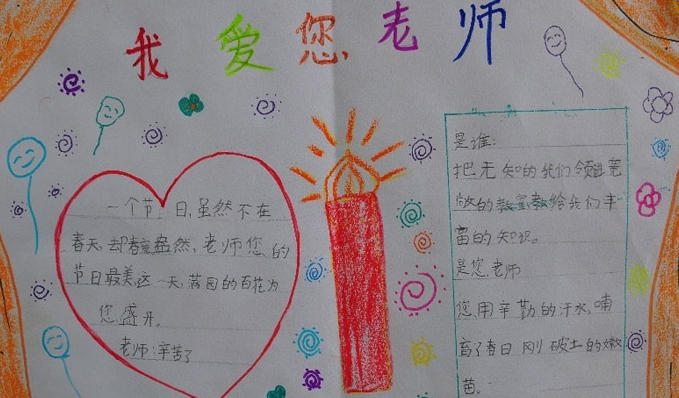 我爱您老师
一个节日,虽然不在
春天,却春意盎然,老师您的
节日最美这一天,满园的百花为
您盛开。
老师:辛苦了
是谁:
把无知的我们领进宽
敞的教室,教给我们丰
富的知识。
是您,老师
您用辛勤的汗水,哺
育了春日刚破土的嫩
苗。